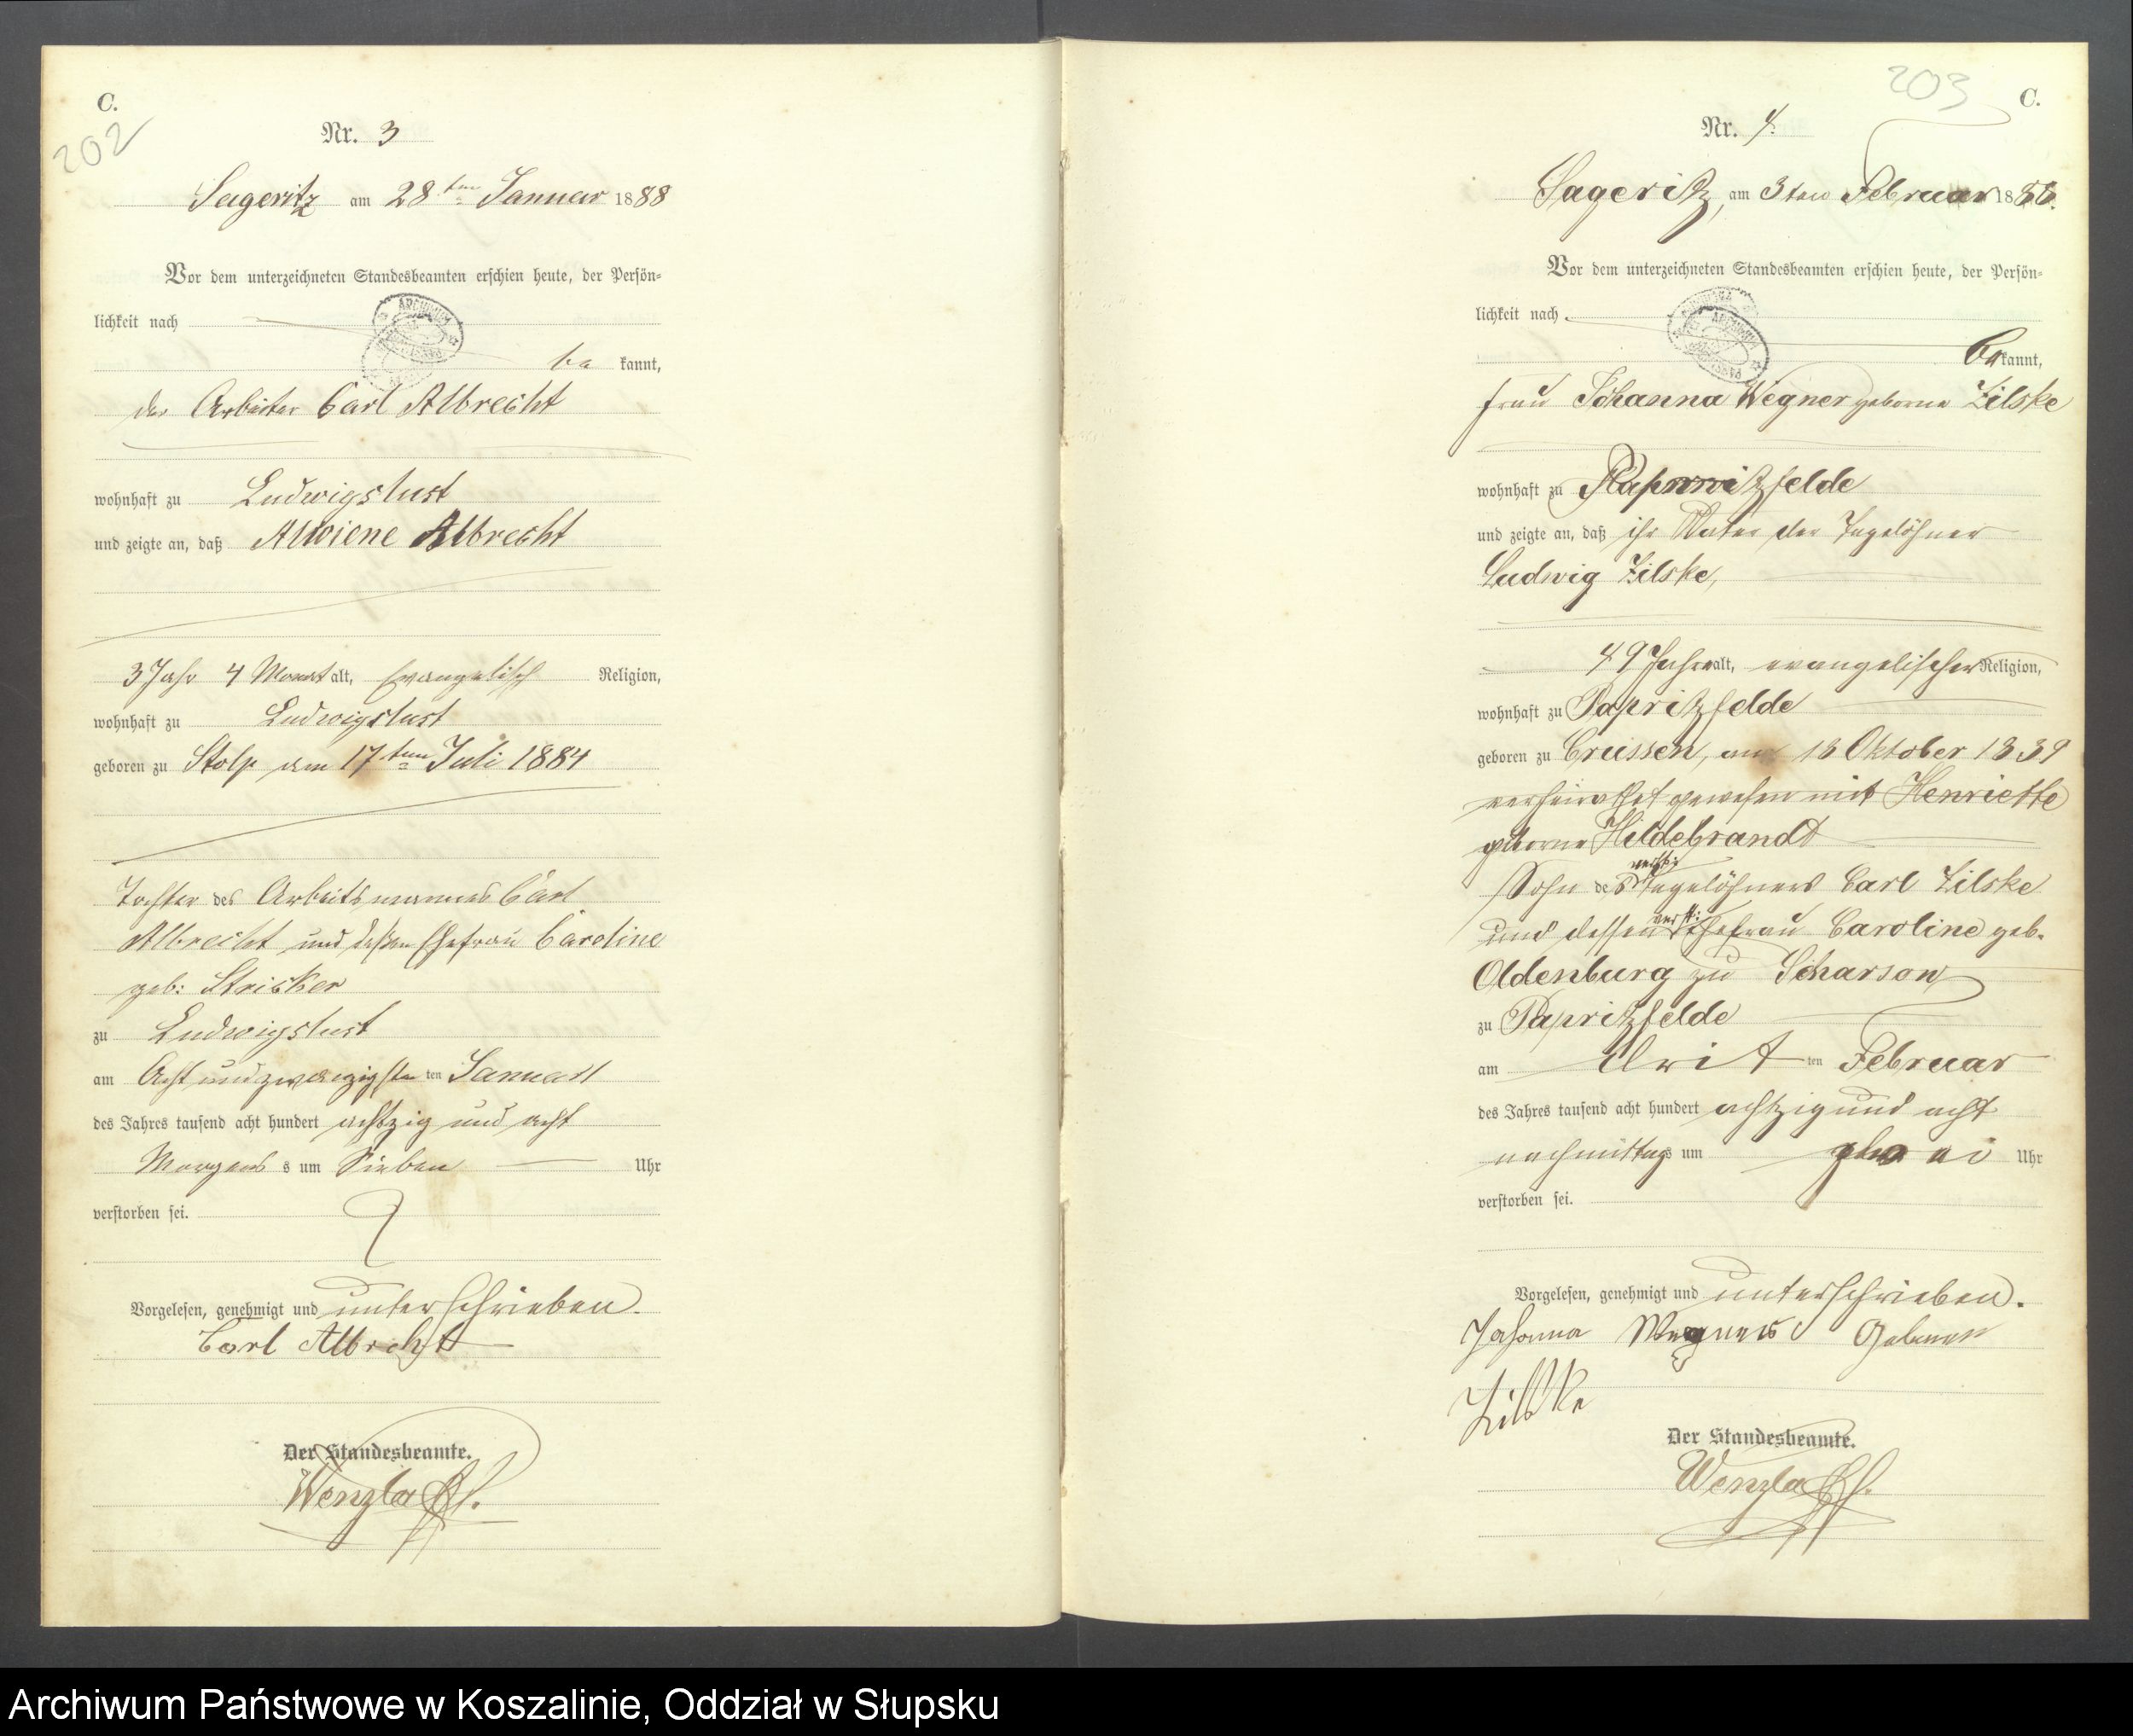 C.
202
Nr. 3
Sageritz am 28ten Januar 1888
Vor dem unterzeichneten Standesbeamten erschien heute, der Persön-
lichkeit nach
be kannt,
der Arbeiter Carl Albrecht
wohnhaft zu Ludwigslust
und zeigte an, daß Alwiene Albrecht
3 Jahr 4 Monat alt, Evangelisch Religion,
wohnhaft zu Ludwigslust
geboren zu Stolp am 17ten Juli 1884
Tochter des Arbeitsmannes Carl
Albrecht und dessen Ehefrau Caroline
geb: Stricker
zu Ludwigslust
am Acht und zwanzigsten ten Januar
des Jahres tausend acht hundert achtzig und acht
Morgens s um Sieben Uhr
verstorben sei.
Vorgelesen, genehmigt und unterschrieben.
Carl Albrecht
Der Standesbeamte.
Wenzlaff.
203
C.
Nr. 4.
Sageritz, am 3ten Februar 1888.
Vor dem unterzeichneten Standesbeamten erschien heute, der Persön-
lichkeit nach
be kannt,
Frau Johanna Wegner geborne Zilske
wohnhaft zu Papritzfelde
und zeigte an, daß ihr Vater der Tagelöhner
Ludwig Zilske,
49 Jahre alt, evangelischer Religion,
wohnhaft zu Papritzfelde
geboren zu Crussen, am 18 Oktober 1839
verheirathet gewesen mit Henriette
geborne Hildebrandt
verst:
Sohn des Tagelöhners Carl Zilske
verst:
und dessen Ehefrau Caroline geb.
Oldenburg zu Scharsow
zu Papritzfelde
am Drit ten Februar
des Jahres tausend acht hundert achtzig und acht
nachmittags um Uhr
verstorben sei.
Vorgelesen, genehmigt und unterschrieben.
Johanna Wegner Geborne
Zilske
Der Standesbeamte.
Wenzlaff.
Archiwum Państwowe w Koszalinie, Oddział w Słupsku